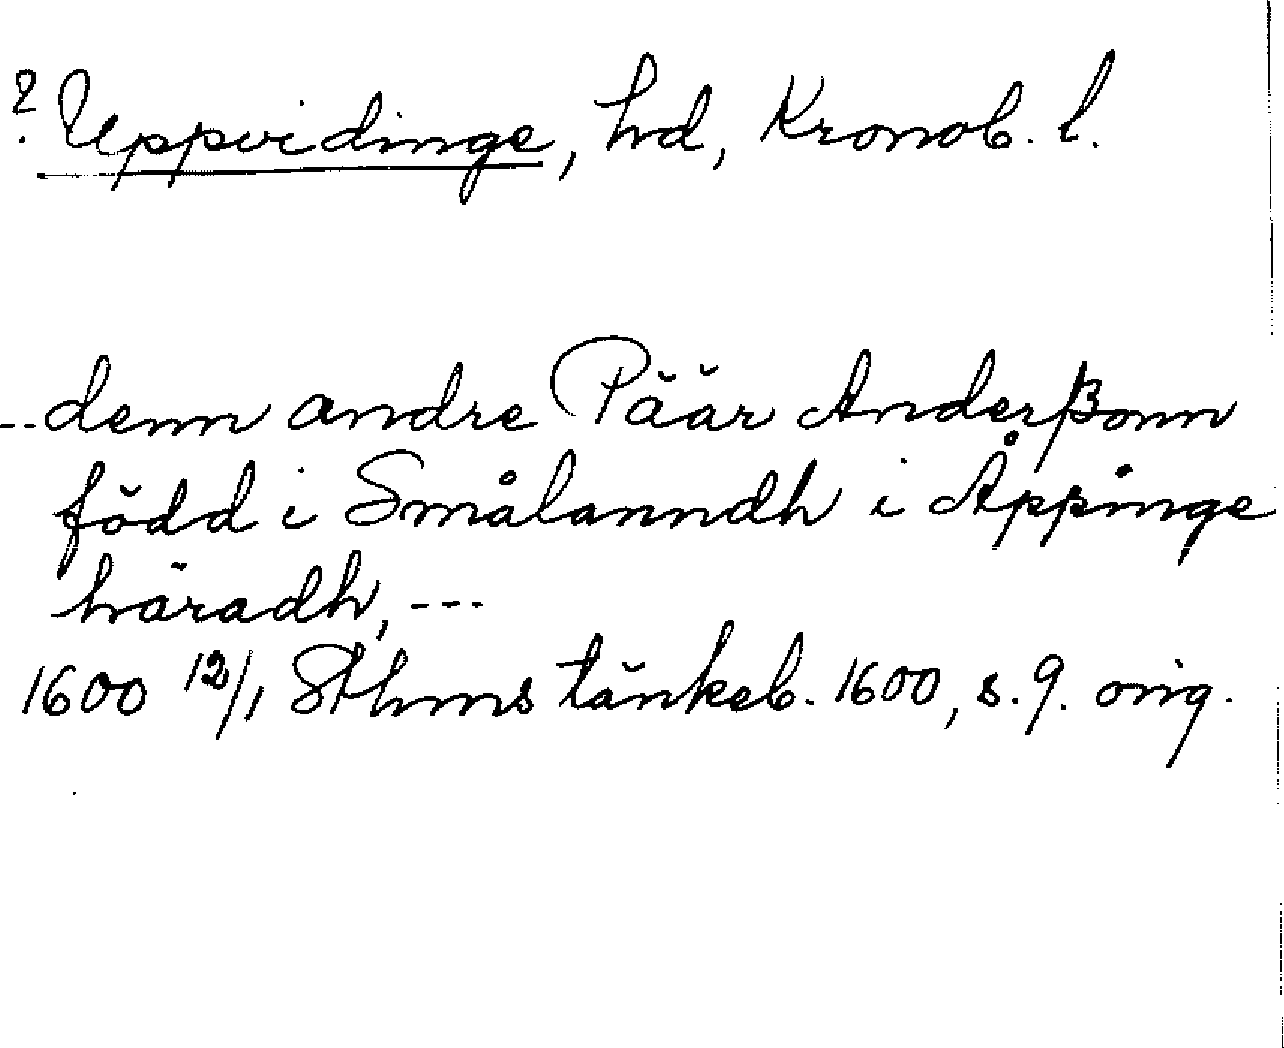 ? Uppvidinge, hd, Kronob. l.
--denn andre Päär Anderßonn
född i Smålanndh i Åppinge
häradh, ---
1600 12/1 Sthms tänkeb. 1600, s. 9. orig.